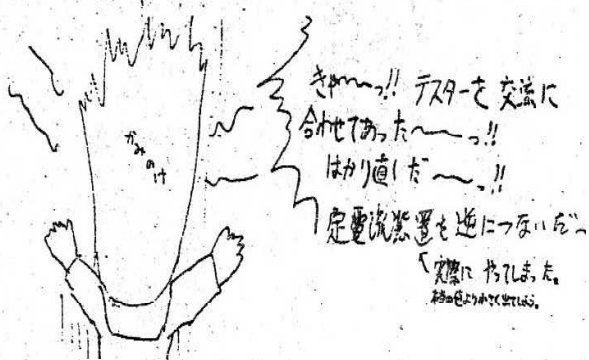 かみのけ
きゃ〜〜っ!! テスターを 交流に
合わせてあった〜〜っ!!
はかり直しだ〜〜っ!!
定電流装置も逆につないだ〜
実際に やってしまった。